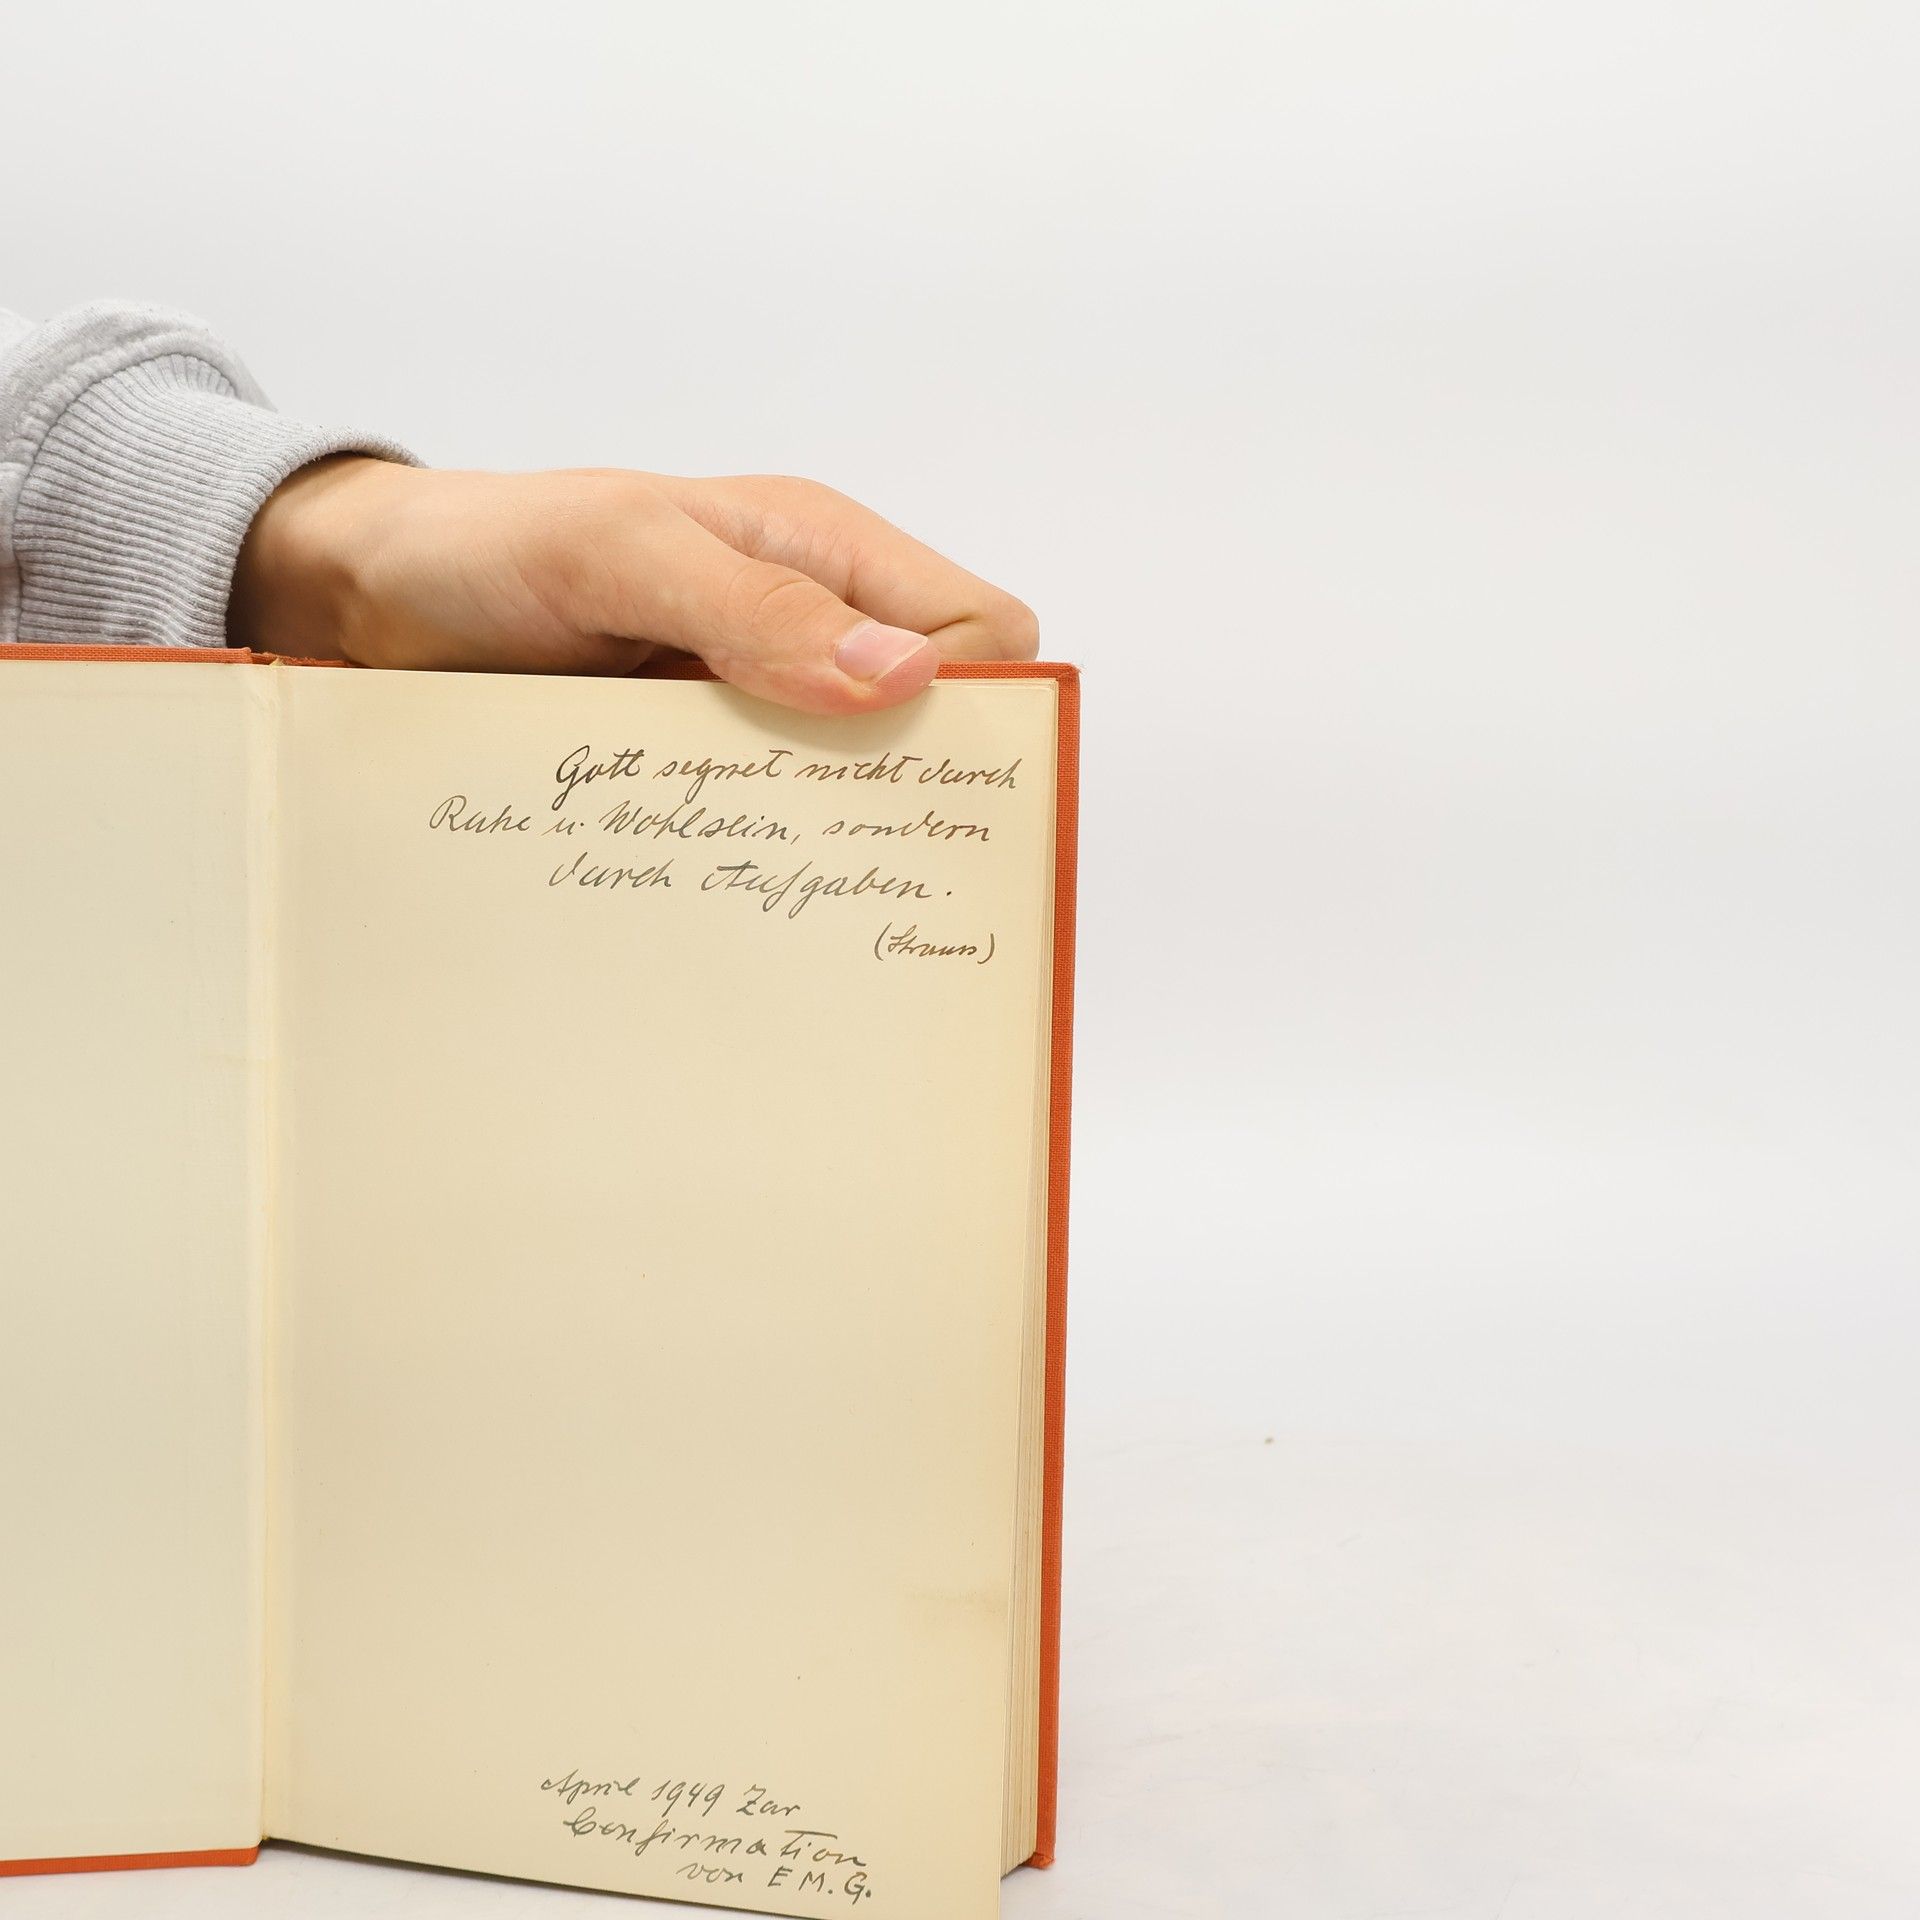 Gott segnet nicht durch
Ruhe u. Wohlsein, sondern
durch Aufgaben.
(Strauss)
April 1949 Zur
Confirmation
von E M. G.